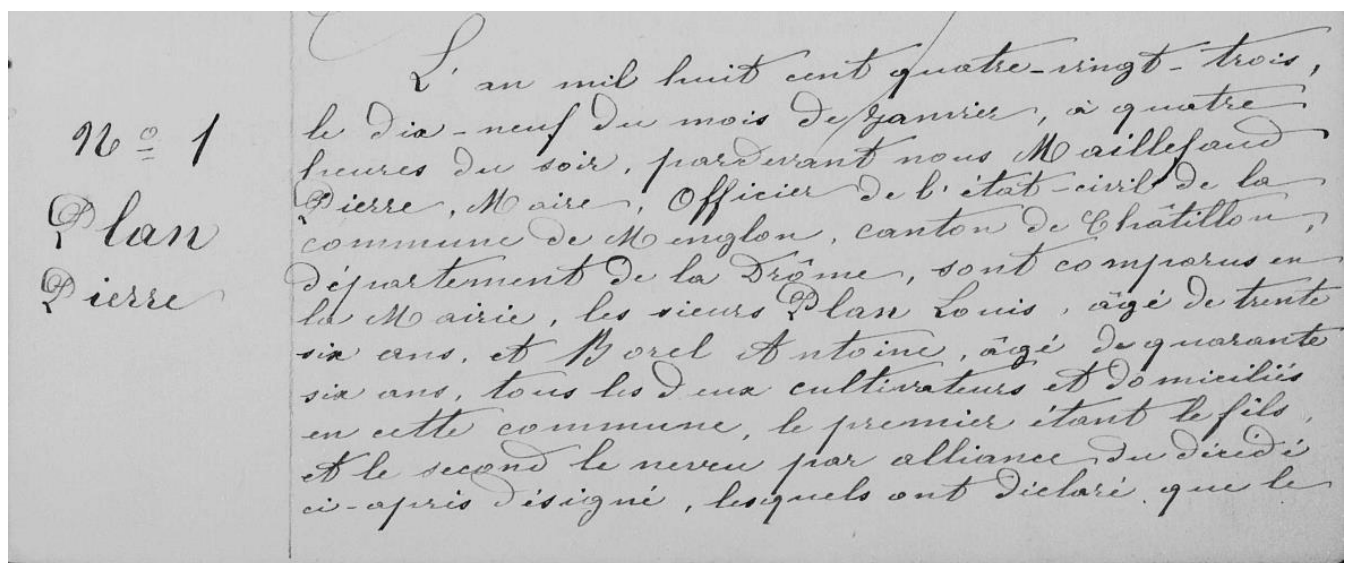 Nº 1
Plan
Pierre
L'an mil huit cent quatre-vingt-trois,
le dix-neuf du mois de Janvier, à quatre
heures du soir, pardevant nous Maillefaud
Pierre, Maire, Officier de l'état-civil de la
commune de Menglon, canton de Châtillon,
département de la Drôme, sont comparus en
la Mairie, les sieurs Plan Louis, âgé de trente
six ans, et Borel Antoine, âgé de quarante
six ans, tous les deux cultivateurs et domiciliés
en cette commune, le premier étant le fils,
et le second le neveu par alliance du décédé
ci-après désigné, lesquels ont déclaré que le